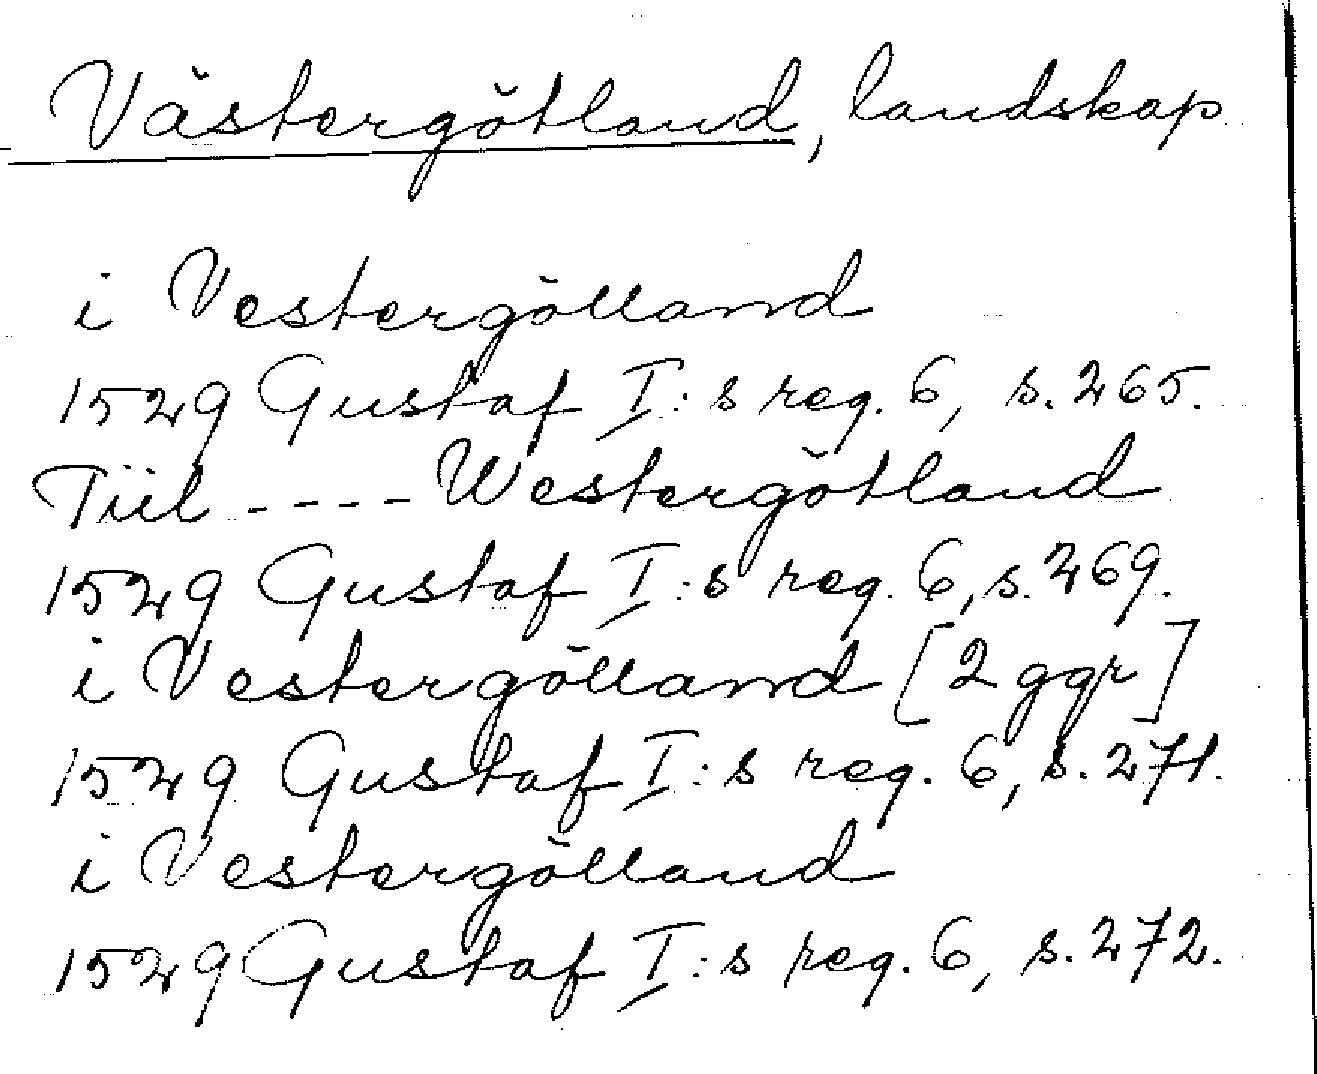 Västergötland, landskap
i Vestergölland
1529 Gustaf I:s reg. 6, s. 265.
Tiil ---- Westergötland
1529 Gustaf I:s reg. 6, s. 269.
i Vestergölland [2 ggr]
1529 Gustaf I:s reg. 6, s. 271.
i Vestergölland
1529 Gustaf I:s reg. 6, s. 272.